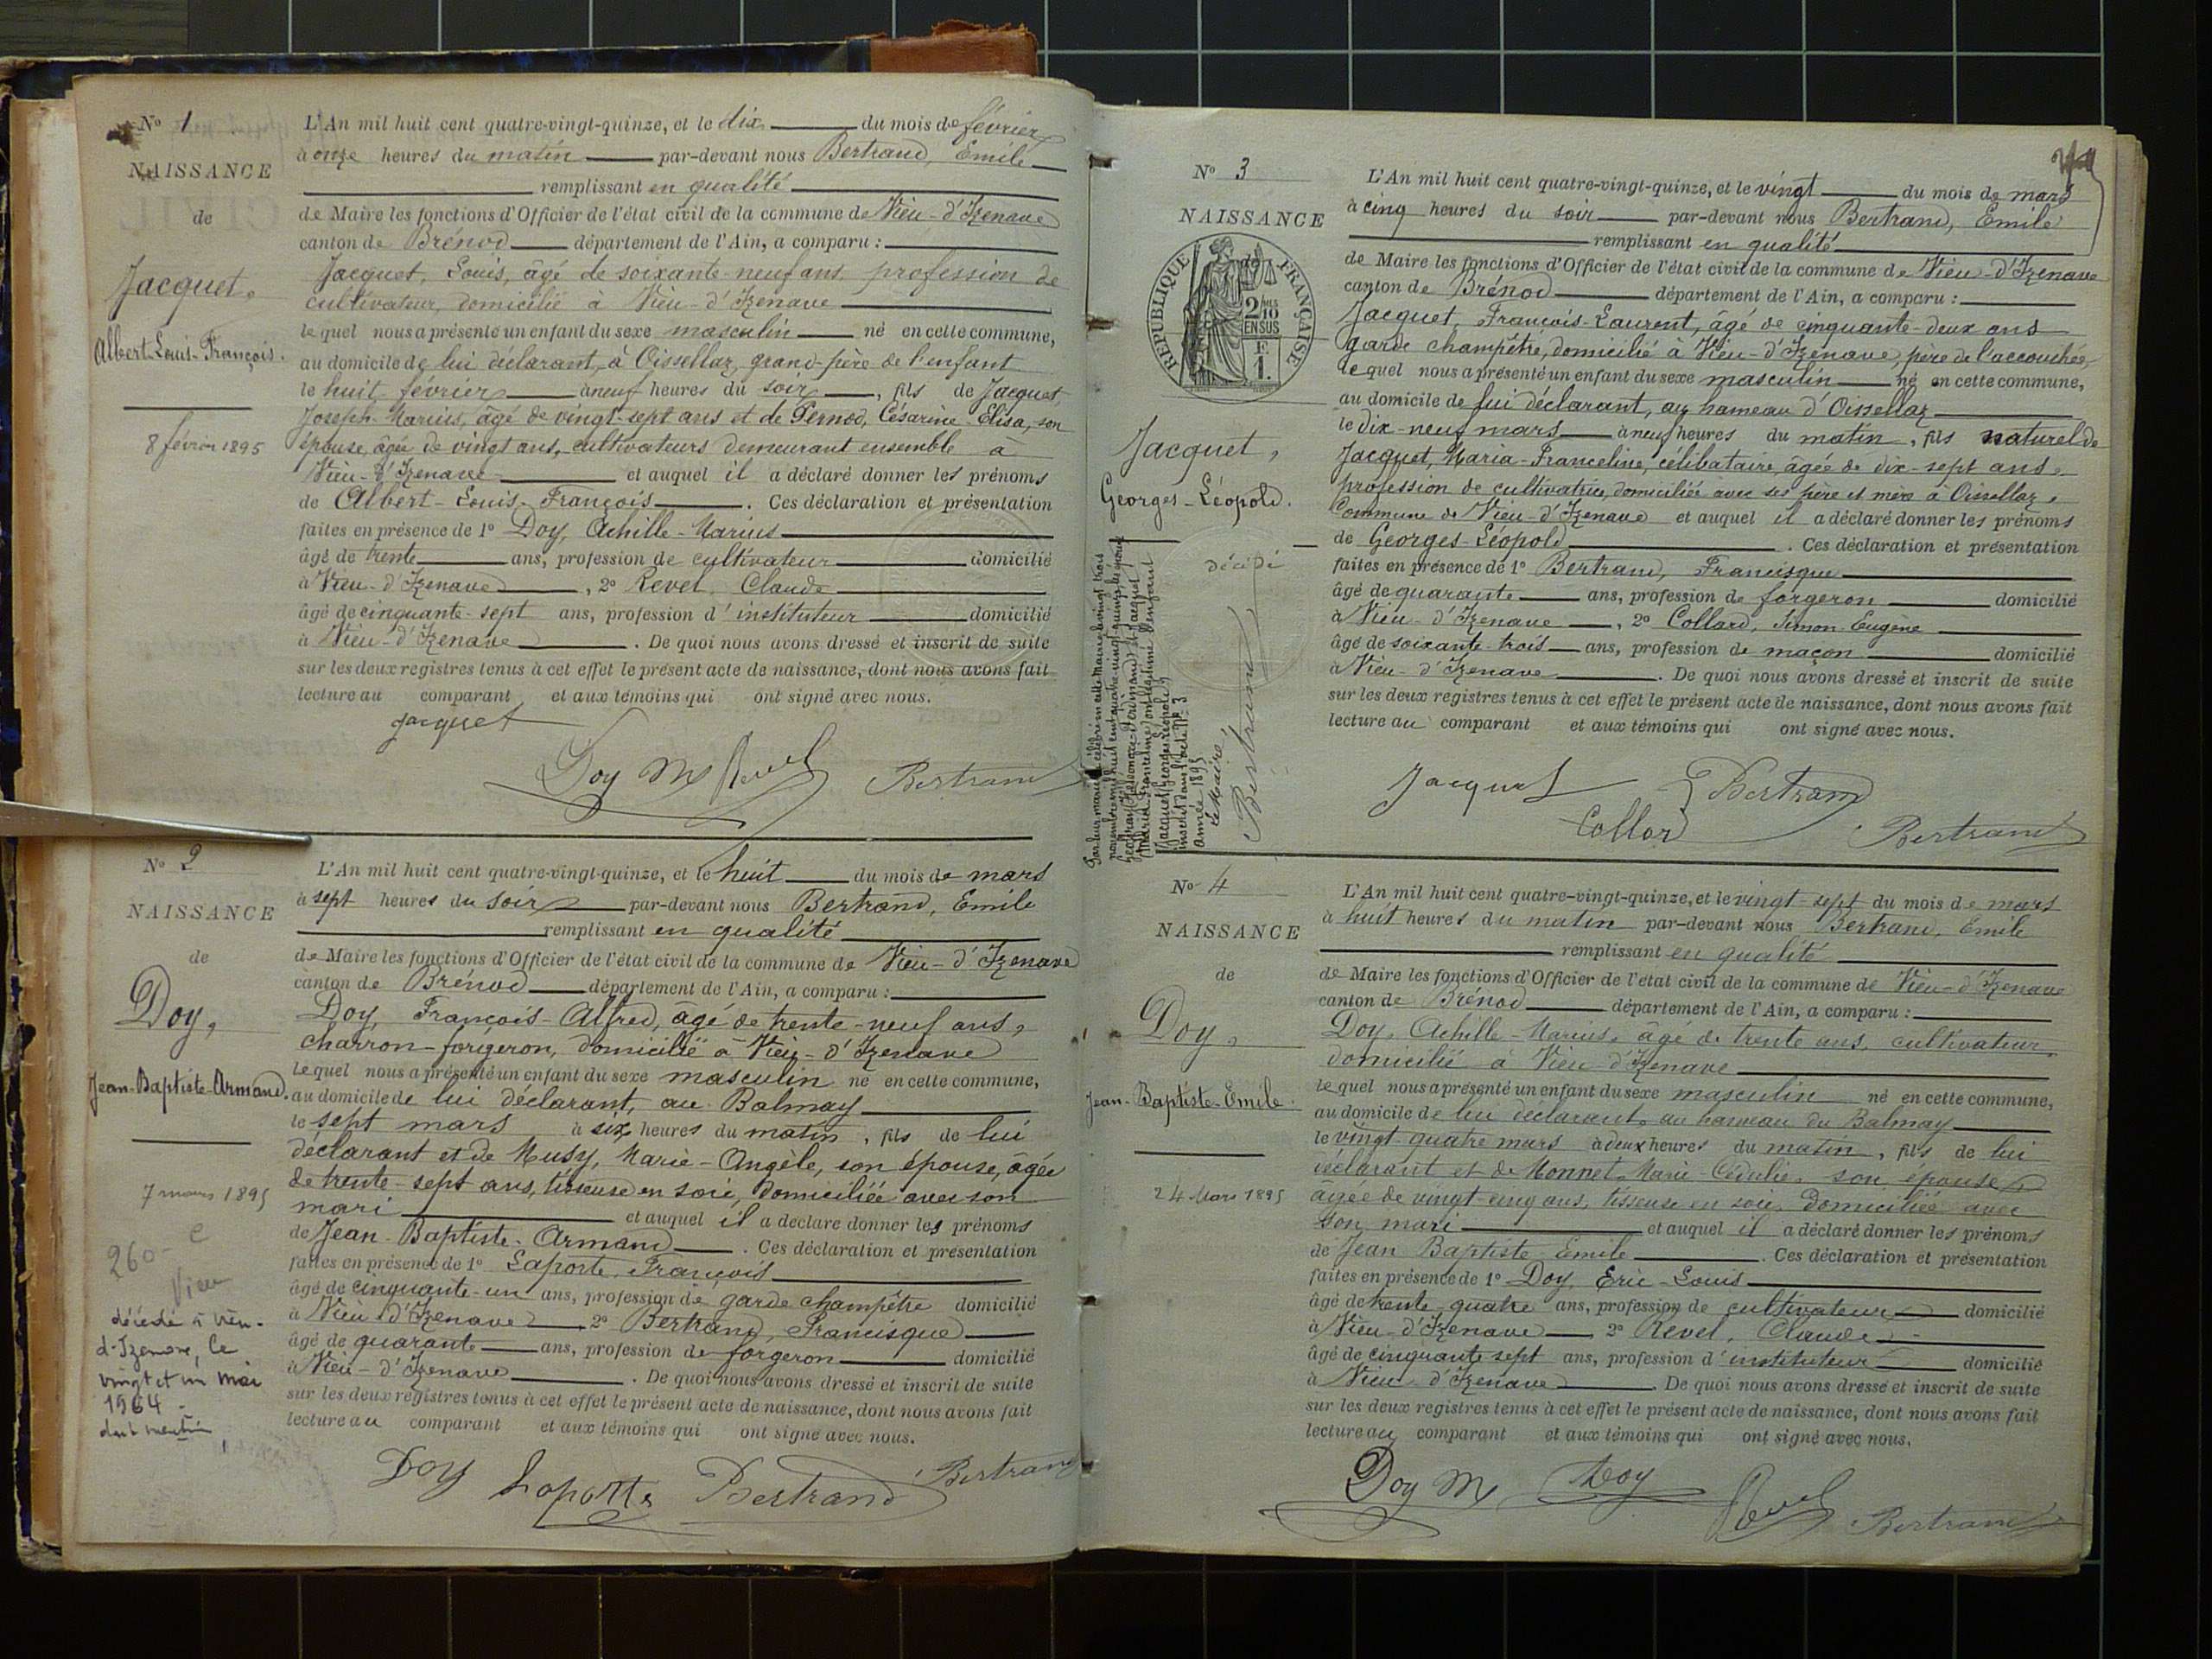 No 1
NAISSANCE
de
Jacquet,
Albert-Louis-François.
8 février 1895
L'An mil huit cent quatre-vingt-quinze, et le dix du mois de février
à onze heures du matin par-devant nous Bertrand, Emile
remplissant en qualité
de Maire les fonctions d'Officier de l'état civil de la commune de Vieu-d'Izenave
canton de Brénod département de l'Ain, a comparu :
Jacquet, Louis, âgé de soixante-neuf ans profession de
cultivateur, domicilié à Vieu-d'Izenave
lequel nous a présenté un enfant du sexe masculin né en cette commune,
au domicile de lui déclarant, à Oissellaz, grand-père de l'enfant
le huit février à neuf heures du soir, fils de Jacquet
Joseph-Marius, âgé de vingt-sept ans et de Pernod, Césarine Elisa, son
épouse, âgée de vingt ans, cultivateurs demeurant ensemble à
Vieu-d'Izenave et auquel il a déclaré donner les prénoms
de Albert-Louis-François. Ces déclaration et présentation
faites en présence de 1º Doy, Achille-Marius
âgé de trente ans, profession de cultivateur domicilié
à Vieu-d'Izenave, 2º Revel, Claude
âgé de cinquante-sept ans, profession d'instituteur domicilié
à Vieu-d'Izenave. De quoi nous avons dressé et inscrit de suite
sur les deux registres tenus à cet effet le présent acte de naissance, dont nous avons fait
lecture au comparant et aux témoins qui ont signé avec nous.
Jacquet
Doy M Revel Bertrand
No 2
NAISSANCE
de
Doy,
Jean-Baptiste-Armand.
7 mars 1895
260-
Vieu
décédé à Vieu-
d'Izenave, le
vingt et un mai
1964 -
dont mention
L'An mil huit cent quatre-vingt-quinze, et le huit du mois de mars
à sept heures du soir par-devant nous Bertrand, Emile
remplissant en qualité
de Maire les fonctions d'Officier de l'état civil de la commune de Vieu-d'Izenave
canton de Brénod département de l'Ain, a comparu :
Doy, François-Alfred, âgé de trente-neuf ans,
charron-forgeron, domicilié à Vieu-d'Izenave
lequel nous a présenté un enfant du sexe masculin né en cette commune,
au domicile de lui déclarant, au Balmay
le sept mars à six heures du matin, fils de lui
déclarant et de Musy, Marie-Angèle, son épouse, âgée
de trente-sept ans, tisseuse en soie, domiciliée avec son
mari et auquel il a déclaré donner les prénoms
de Jean-Baptiste-Armand. Ces déclaration et présentation
faites en présence de 1º Laporte, François
âgé de cinquante-un ans, profession de garde champêtre domicilié
à Vieu-d'Izenave 2º Bertrand, Francisque
âgé de quarante ans, profession de forgeron domicilié
à Vieu-d'Izenave. De quoi nous avons dressé et inscrit de suite
sur les deux registres tenus à cet effet le présent acte de naissance, dont nous avons fait
lecture au comparant et aux témoins qui ont signé avec nous.
Doy Laporte Bertrand Bertrand
No 3
NAISSANCE
de
RÉPUBLIQUE FRANÇAISE
2/10
EN SUS
F
1.
Jacquet,
Georges-Léopold.
décédé
Par leur mariage célébré en cette Mairie le vingt trois
novembre mil huit cent quatre-vingt-quinze
Jacquet
Maria-Franceline ont légitimé l'enfant
Jacquet Georges Léopold
inscrit dans l'acte Nº 3
année 1895
Le Maire,
Bertrand
L'An mil huit cent quatre-vingt-quinze, et le vingt du mois de mars
à cinq heures du soir par-devant nous Bertrand, Emile
remplissant en qualité
de Maire les fonctions d'Officier de l'état civil de la commune de Vieu-d'Izenave
canton de Brénod département de l'Ain, a comparu :
Jacquet, François-Laurent, âgé de cinquante-deux ans
garde champêtre, domicilié à Vieu-d'Izenave, père de l'accouchée,
lequel nous a présenté un enfant du sexe masculin né en cette commune,
au domicile de lui déclarant, au hameau d'Oissellaz
le dix-neuf mars à neuf heures du matin, fils naturel de
Jacquet, Maria-Franceline, célibataire, âgée de dix-sept ans,
profession de cultivatrice, domiciliée avec ses père et mère à Oissellaz,
Commune de Vieu-d'Izenave et auquel il a déclaré donner les prénoms
de Georges-Léopold. Ces déclaration et présentation
faites en présence de 1º Bertrand, Francisque
âgé de quarante ans, profession de forgeron domicilié
à Vieu-d'Izenave, 2º Collard, Simon-Eugène
âgé de soixante-trois ans, profession de maçon domicilié
à Vieu-d'Izenave. De quoi nous avons dressé et inscrit de suite
sur les deux registres tenus à cet effet le présent acte de naissance, dont nous avons fait
lecture au comparant et aux témoins qui ont signé avec nous.
Jacquet Bertrand
Collard Bertrand
No 4
NAISSANCE
de
Doy,
Jean-Baptiste-Emile.
24 Mars 1895
L'An mil huit cent quatre-vingt-quinze, et le vingt-sept du mois de mars
à huit heures du matin par-devant nous Bertrand, Emile
remplissant en qualité
de Maire les fonctions d'Officier de l'état civil de la commune de Vieu-d'Izenave
canton de Brénod département de l'Ain, a comparu :
Doy, Achille-Marius, âgé de trente ans, cultivateur,
domicilié à Vieu-d'Izenave
lequel nous a présenté un enfant du sexe masculin né en cette commune,
au domicile de lui déclarant, au hameau du Balmay
le vingt-quatre mars à deux heures du matin, fils de lui
déclarant et de Monnet, Marie-, son épouse,
âgée de vingt-cinq ans, tisseuse en soie, domiciliée avec
son mari et auquel il a déclaré donner les prénoms
de Jean Baptiste Emile. Ces déclaration et présentation
faites en présence de 1º Doy, Eric-Louis
âgé de trente-quatre ans, profession de cultivateur domicilié
à Vieu-d'Izenave 2º Revel, Claude
âgé de cinquante-sept ans, profession d'instituteur domicilié
à Vieu-d'Izenave. De quoi nous avons dressé et inscrit de suite
sur les deux registres tenus à cet effet le présent acte de naissance, dont nous avons fait
lecture au comparant et aux témoins qui ont signé avec nous.
Doy M Doy Revel Bertrand